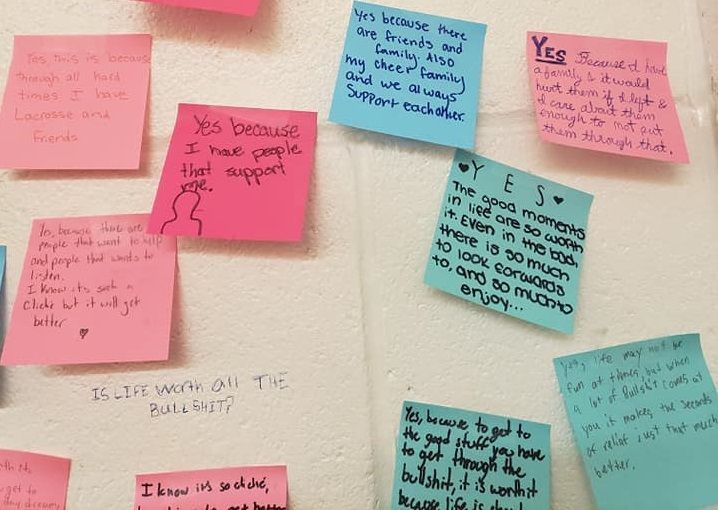 Yes this is because
through all hard
times I have
Lacrosse and
friends
Yes because
I have people
that support
me.
Yes because there
are friends and
family. Also
my cheer family
and we always
support eachother.
YES Because I have
a family & it would
hurt them if I left &
I care about them
enough to not put
them through that.
Yes, because there are
people that want to help
and people that wants to
listen.
I know its such a
cliche but it will get
better
♥Y E S♥
The good moments
in life are so worth
it. Even in the bad,
there is so much
to look forwards
to, and so much to
enjoy...
IS LIFE Worth all THE
BULLSHIT?
yes, life may not be
fun at times, but when
a lot of Bullshit comes at
you it makes the seconds
of relief just that much
better.
Yes, because to get to
the good stuff you have
to get through the
bullshit, it is worth it
because life is
get to
I know its so cliché,
get better